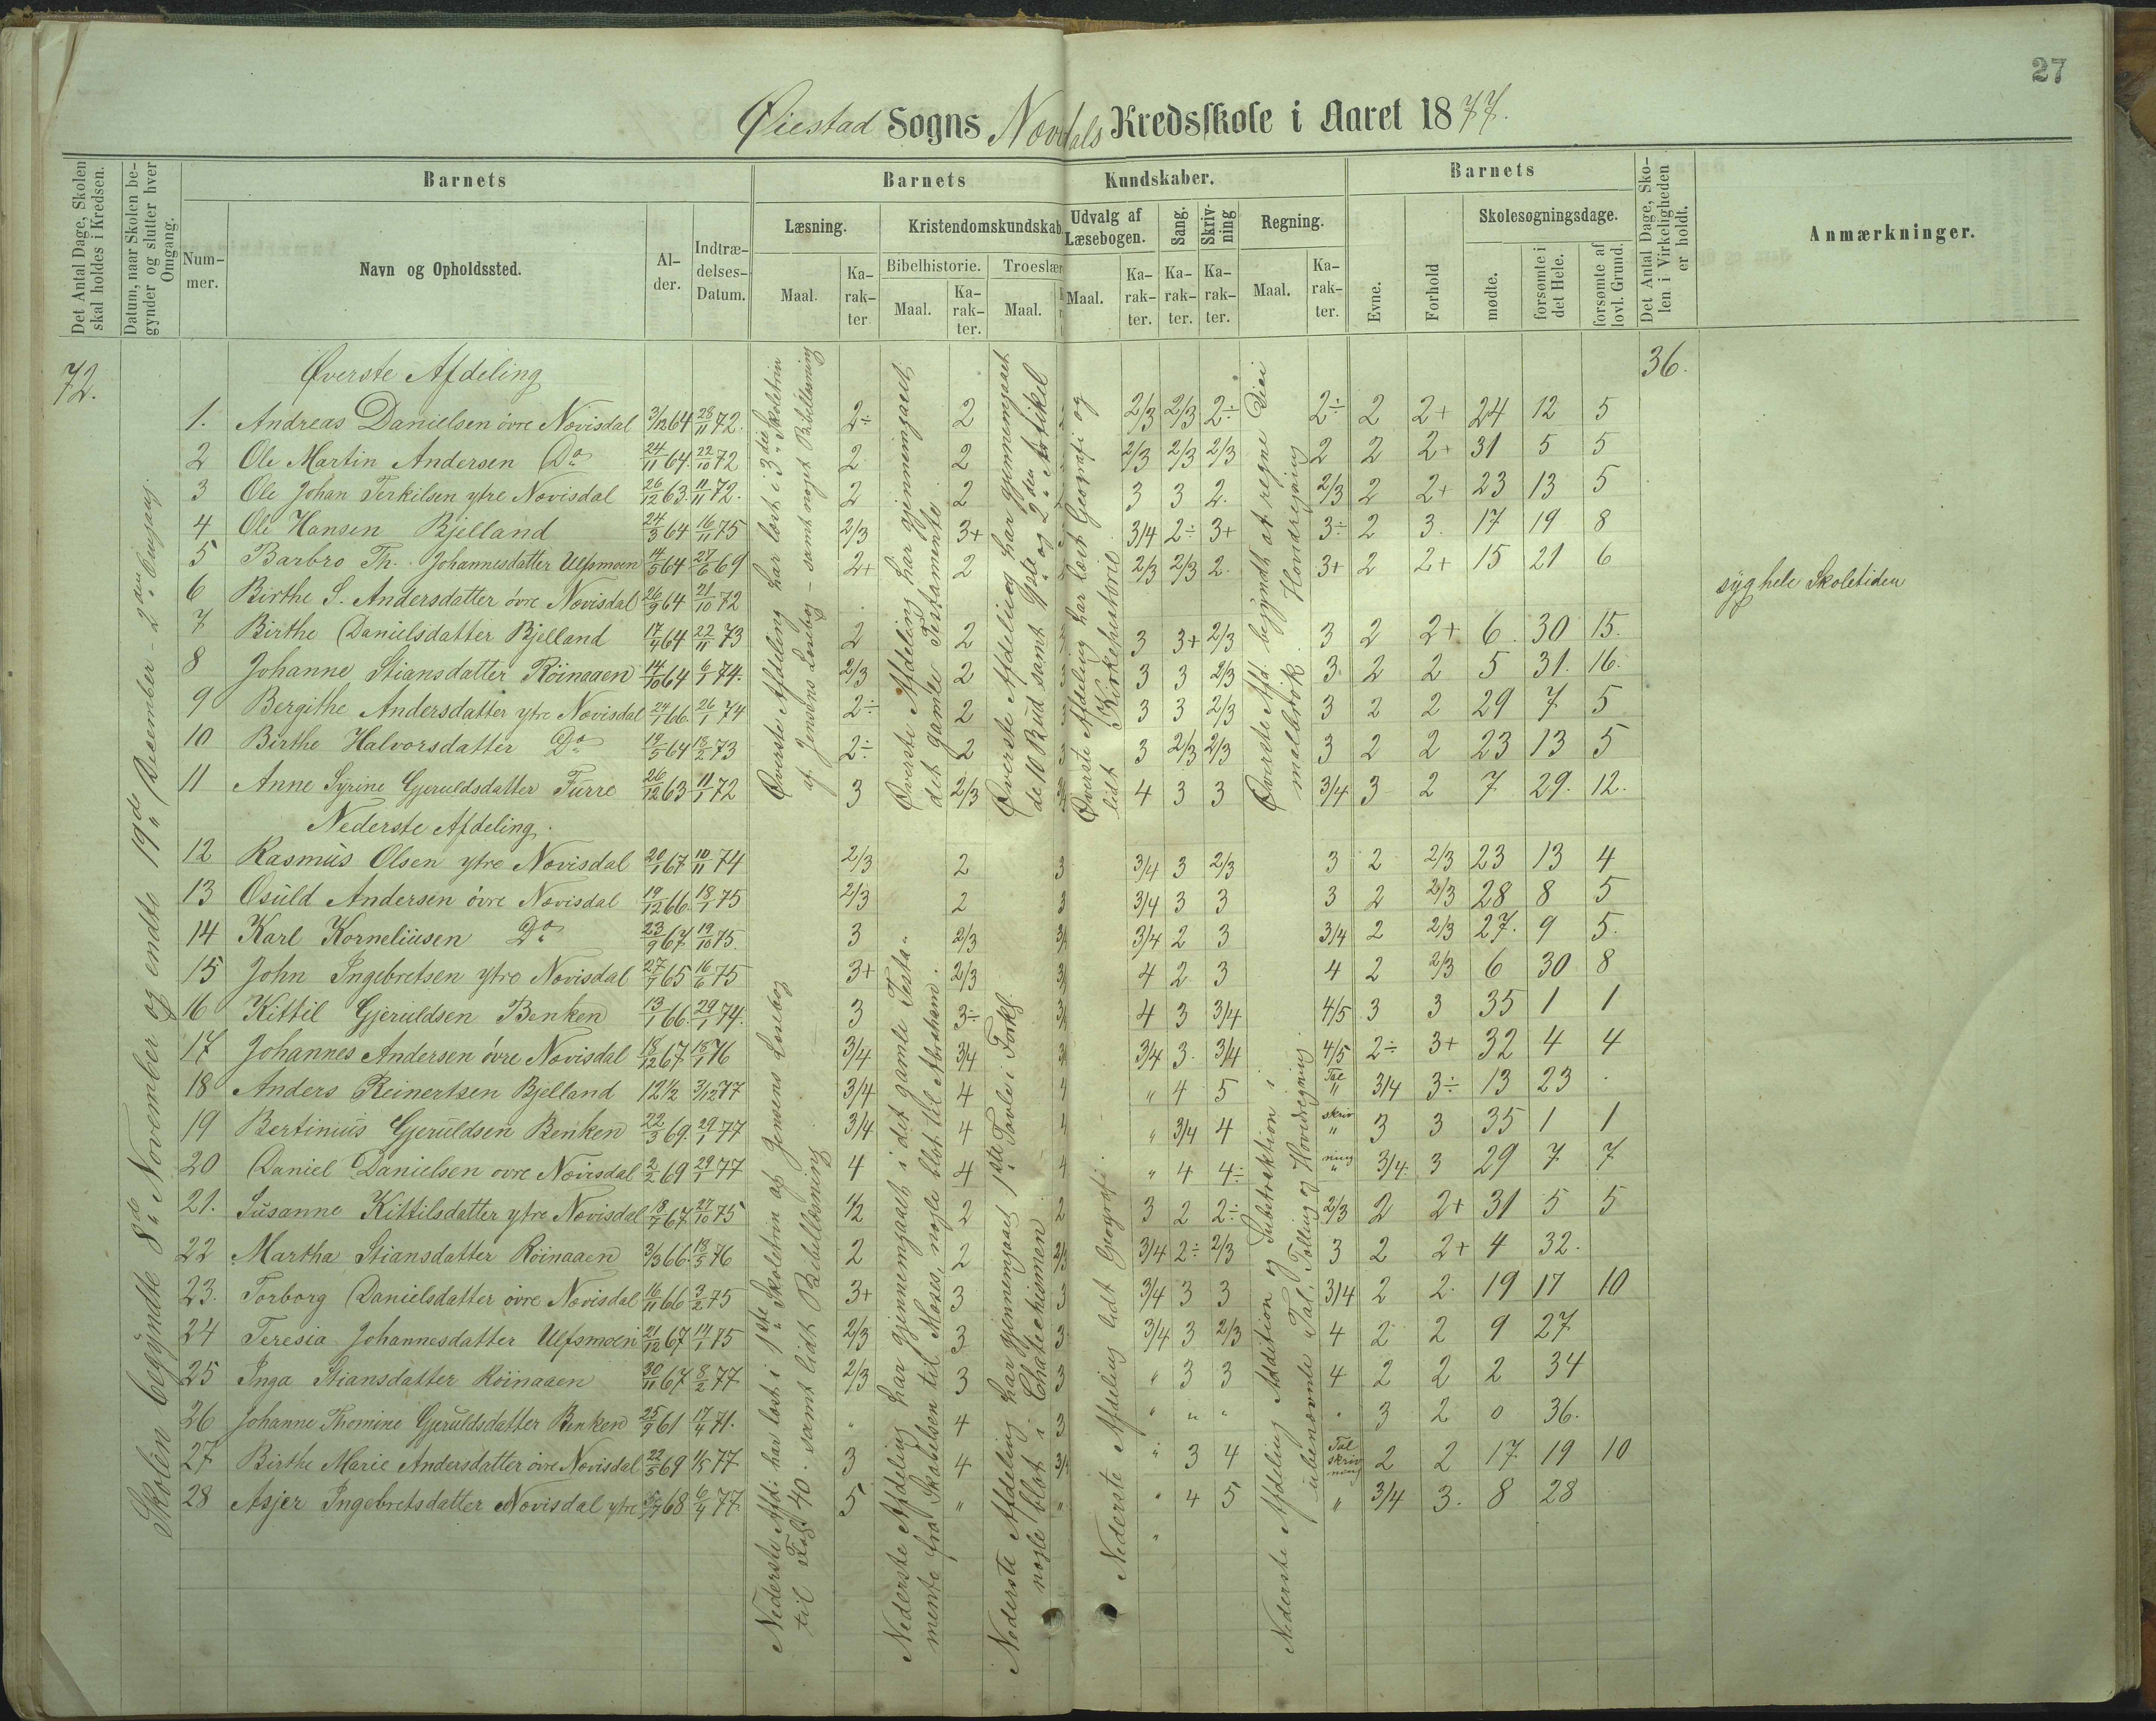 27
Øiestad Sogns Nævdals Kredsskole i Aaret 1877.
Det Antal Dage, Skolen skal holdes i Kredsen.
Datum, naar Skolen begynder og slutter hver Omgang.
Barnets
Barnets Kundskaber.
Barnets
Det Antal Dage, Skolen i Virkeligheden er holdt.
Anmærkninger.
Nummer.
Navn og Opholdssted.
Alder.
Indtrædelses-Datum.
Læsning.
Kristendomskundskab
Udvalg af Læsebogen.
Sang.
Skrivning
Regning.
Evne.
Forhold
Skolesøgningsdage.
Bibelhistorie.
Troeslær
Maal. Karakter
Maal. Karakter.
Maal.
Maal. Karakter.
Karakter.
Karakter.
Maal. Karakter.
mødte.
forsømte i det Hele.
forsømte af lovl. Grund.
72.
36.
Skolen begyndte 8de November og endte 19de Desember - 2den Omgang.
Øverste Afdeling
1. Andreas Danielsen övre Nævisdal 3/12 64 28/11 72. 2÷ 2 2/3 2/3 2÷ 2÷ 2 2+ 24 12 5
2 Ole Martin Andersen Do 24/11 64. 22/10 72 2 2 2/3 2/3 2/3 2 2 2+ 31 5 5
3 Ole Johan Terkilsen ytre Nævisdal 26/12 63. 11/11 72. 2 2 3 3 2. 2/3 2 2+ 23 13 5
4 Ole Hansen Bjelland 24/3 64 16/11 75 2/3 3+ 3/4 2÷ 3+ 3÷ 2 3. 17 19 8
5 Barbro Th. Johannesdatter Ulfsmoen 14/5 64 27/6 69 2+ 2 2/3 2/3 2. 3+ 2 2+ 15 21 6
6 Birthe S. Andersdatter övre Nævisdal 26/9 64 21/10 72 syg hele Skoletiden
7 Birthe Danielsdatter Bjelland 17/4 64 22/11 73 2 2 3 3+ 2/3 3 2 2+ 6. 30 15.
8 Johanne Stiansdatter Röinaaen 14/10 64 6/1 74. 2/3 2 3 3 2/3 3. 2 2 5 31. 16.
9 Bergithe Andersdatter ytre Nævisdal 24/1 66. 26/1 74 2÷ 2 3 3 2/3 3 2 2 29 7 5
10 Birthe Halvorsdatter Do 19/5 64 18/2 73 2÷ 2 3 2/3 2/3 3 2 2 23 13 5
11 Anne Syrine Gjeruldsdatter Furre 26/12 63 11/1 72 3 2/3 4 3 3 3/4 3 2 7 29. 12.
Nederste Afdeling.
12 Rasmus Olsen ytre Nævisdal 20/1 67 10/11 74 2/3 2 3 3/4 3 2/3 3 2 2/3 23 13 4
13 Osuld Andersen övre Nævisdal 19/12 66. 18/1 75 2/3 2 3 3/4 3 3 3 2 2/3 28 8 5
14 Karl Korneliusen Do 23/9 67 19/10 75. 3 2/3 3/ 3/4 2 3 3/4 2 2/3 27. 9 5.
15 John Ingebretsen ytre Nævisdal 27/7 65 16/6 75 3+ 2/3 3/ 4 2 3 4 2 2/3 6 30 8
16 Kittil Gjeruldsen Benken 13/1 66. 29/1 74. 3 3÷ 3/ 4 3 3/4 4/5 3 3 35 1 1
17 Johannes Andersen övre Nævisdal 18/12 67 18/1 76 3/4 3/4 3/ 3/4 3. 3/4 4/5 2÷ 3+ 32 4 4
18 Anders Reinertsen Bjelland 12 1/2 3/12 77 3/4 4 4 " 4 5 Tal " 3/4 3÷ 13 23
19 Bertinius Gjeruldsen Benken 22/3 69. 29/1 77 3/4 4 4 " 3/4 4 skriv " 3 3 35 1 1
20 Daniel Danielsen ovre Nævisdal 2/2 69 29/1 77 4 4 4 " 4 4÷ ning " 3/4. 3 29 7 7
21. Susanne Kittilsdatter ytre Nævisdal 18/7 67. 27/10 75 1/2 2 2 3 2 2÷ 2/3 2 2+ 31 5 5
22 Martha Stiansdatter Röinaaen 3/3 66. 18/5 76 2 2 2/3 3/4 2÷ 2/3 3 2 2+ 4 32.
23. Torborg Danielsdatter övre Nævisdal 16/11 66 3/2 75 3+ 3 3 3/4 3 3 3/4 2 2. 19 17 10
24 Teresia Johannesdatter Ulfsmoen 21/12 67 14/1 75 2/3 3 3 3/4 3 2/3 4 2 2 9 27
25 Inga Stiansdatter Röinaaen 30/11 67 8/2 77 2/3 3 3 " 3 3 4 2 2 2 34
26 Johanne Themine Gjeruldsdatter Benken 25/9 61 17/4 71. " 4 3 " " " " 3 2 0 36.
27 Birthe Marie Andersdatter övre Nævisdal 22/5 69 1/5 77 3 4 3/ " 3 4 Tal skriv ning 2 2 17 19 10
28 Asjer Ingebretsdatter Nævisdal ytre 68 6/4 77. 5 " " " 4 5 " 3/4 3. 8 28
Øverste Afdeling har læst i 3die Skoletrin
af Jensens Læsebog - samt noget Bibellæsning
Øverste Afdeling har gjennemgaaet
det gamle Testamente
Øverste Afdeling har gjennemgaaet
de 10 Bud samt 1ste og 2den Artikel
Øverste Afdeling har læst Geografi og
lidt Kirkehistorie
Øverste Afd. begyndt at regne
Hovedregning
Nederste Afd. har læst i 1ste Skoletrin af Jensens Læsebog
til 40. samt lidt Bibellæsning
Nederste Afdeling har gjennemgaaet i det gamle Testa-
mente fra Skabelsen til Moses, nogle blot til Abraham.
Nederste Afdeling har gjennemgaaet 1ste Tavle i Forkl.
nogle blot i Chatechismen
Nederste Afdeling lidt Geografi.
Nederste Afdeling Addition og Subtraktion i
ubenævnte Tal, Tælling og Hovedregning.